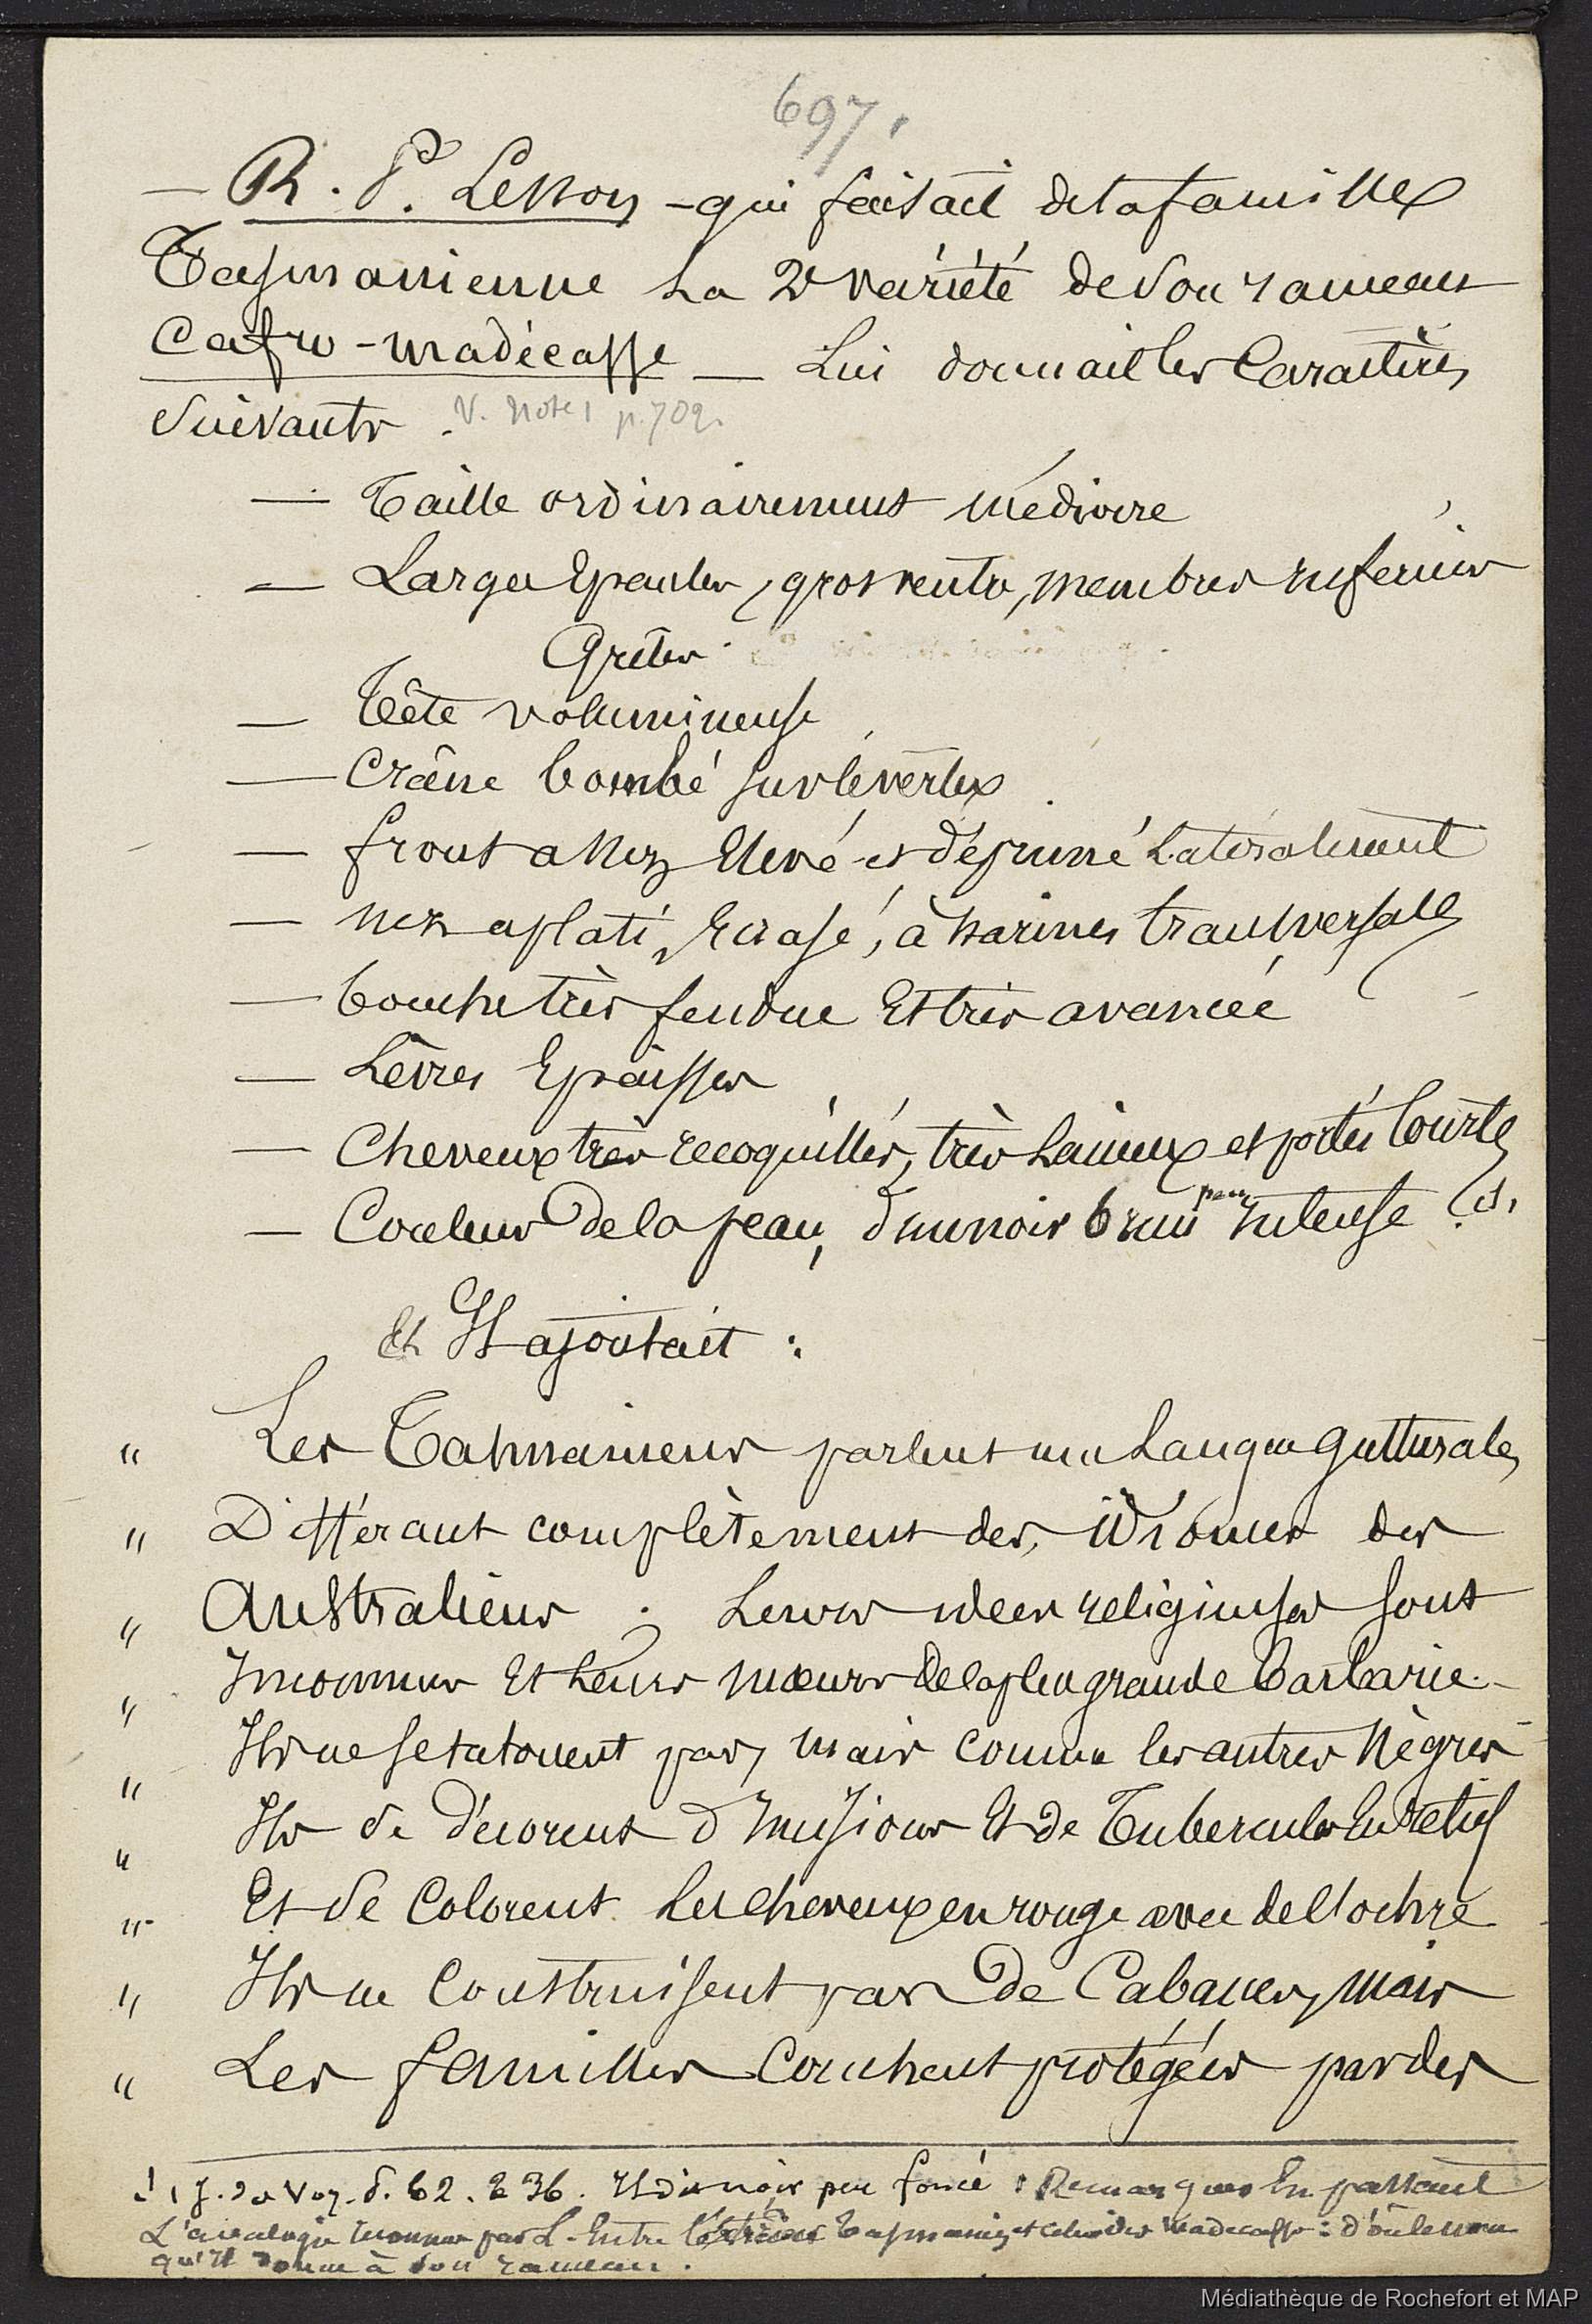 697.
— R. P. Lesson – qui faisait de la famille
Tasmanienne la 2e variété de son rameau
Cafro-madécasse — lui donnait les Caractères
Suivants . V. note 1 p. 702.
— Taille ordinairement médiocre
— Larges Epaules, gros ventre, membres inférieurs
Grêles.
— Tête volumineuse
— Crâne bombé sur le vertex
— front assez Elevé et déprimé latéralement
— nez aplati, Ecrasé, à narines transversales
— bouche très fendue Et très avancée
— Lèvres Epaisses
— Cheveux très recoquillés, très laineux et portés Courts
— Couleur de la peau, d'un noir brun peu intense (1).
Et Il ajoutait :
" Les Tasmaniens parlent une Langue gutturale,
" Différant complètement des idiomes des
" Australiens . Leurs idées religieuses sont
" Inconnues Et leurs mœurs de la plus grande barbarie.
" Ils ne se tatouent pas, mais comme les autres Nègres
" Ils se décorent d'Incisions Et de Tubercules En relief
" Et se Colorent les cheveux en rouge avec de l'ochre
" Ils ne Construisent pas de Cabanes, mais
" Les familles Couchent protégées par des
(1) J. de Voy. P. 62. 236. Il dit noir peu foncé : Remarquer En passant
L'analogie reconnue par L. Entre Tasmaniens et celui des Madécasses : d'où le nom
qu'Il donne à son rameau.
Médiathèque de Rochefort et MAP